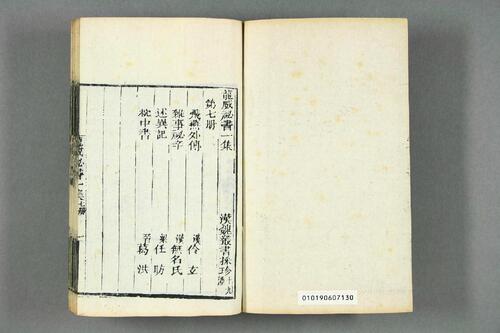 龍威祕書一集
漢魏叢書採珍
第七册
飛燕外傳 漢 伶玄
雜事祕辛 漢 無名氏
述異記 梁 任昉
枕中書 晉 葛洪
010190607130